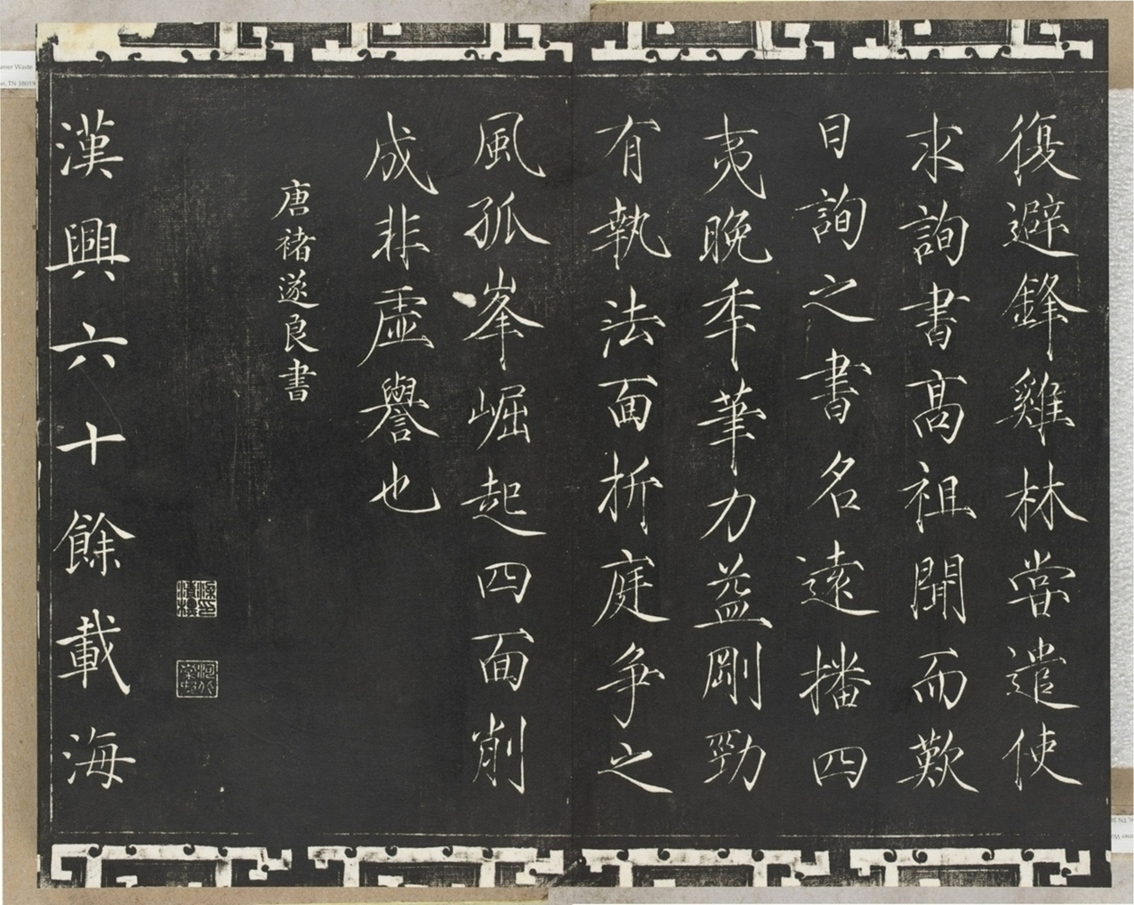 復避鋒雞林嘗遣使
求詢書高祖聞而歎
曰詢之書名遠播四
夷晚年筆力益剛勁
有執法面折庭争之
風孤峯崛起四面削
成非虛譽也
唐褚遂良書
漢興六十餘載海